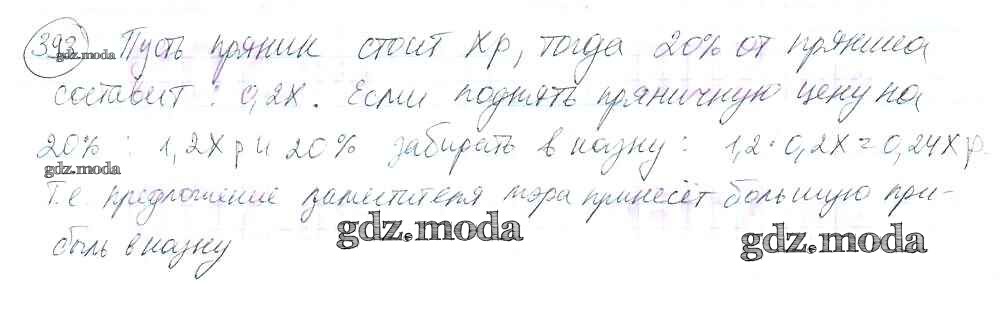 393 Пусть пряник стоит Хр, тогда 20% от пряника
gdz.moda
составит: 0,2Х. Если поднять пряничную цену на
20% : 1,2Х р и 20% забирать в казну: 1,2·0,2Х=0,24Хр.
Т.е. предложение заместителя мэра принесёт большую при-
быль в казну
gdz.moda
gdz.moda